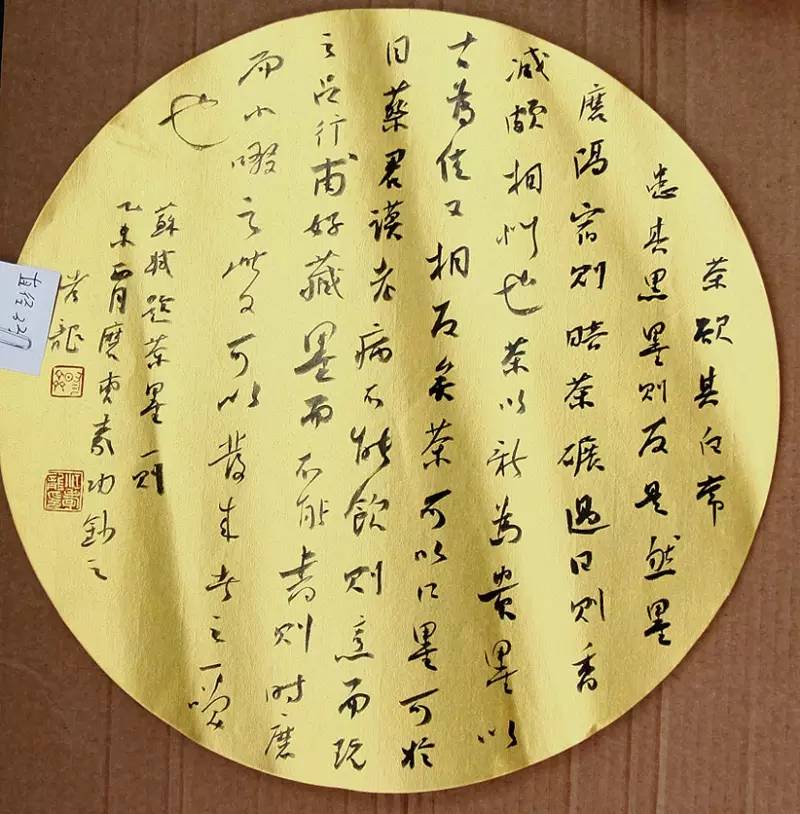 茶欲其白常
患其黑墨则反是然墨
磨隔宿则暗茶碾過日则香
减颇相似也茶以新為贵墨以
古為佳又相反矣茶可以口墨可於
目蔡君谟老病不能飲则烹而玩
之吕行甫好藏墨而不能書则时磨
而小啜之此又可以發来者之一笑
也
蘇軾題茶墨一则
乙未酉月磨曹素功鈔之
龍
直径33